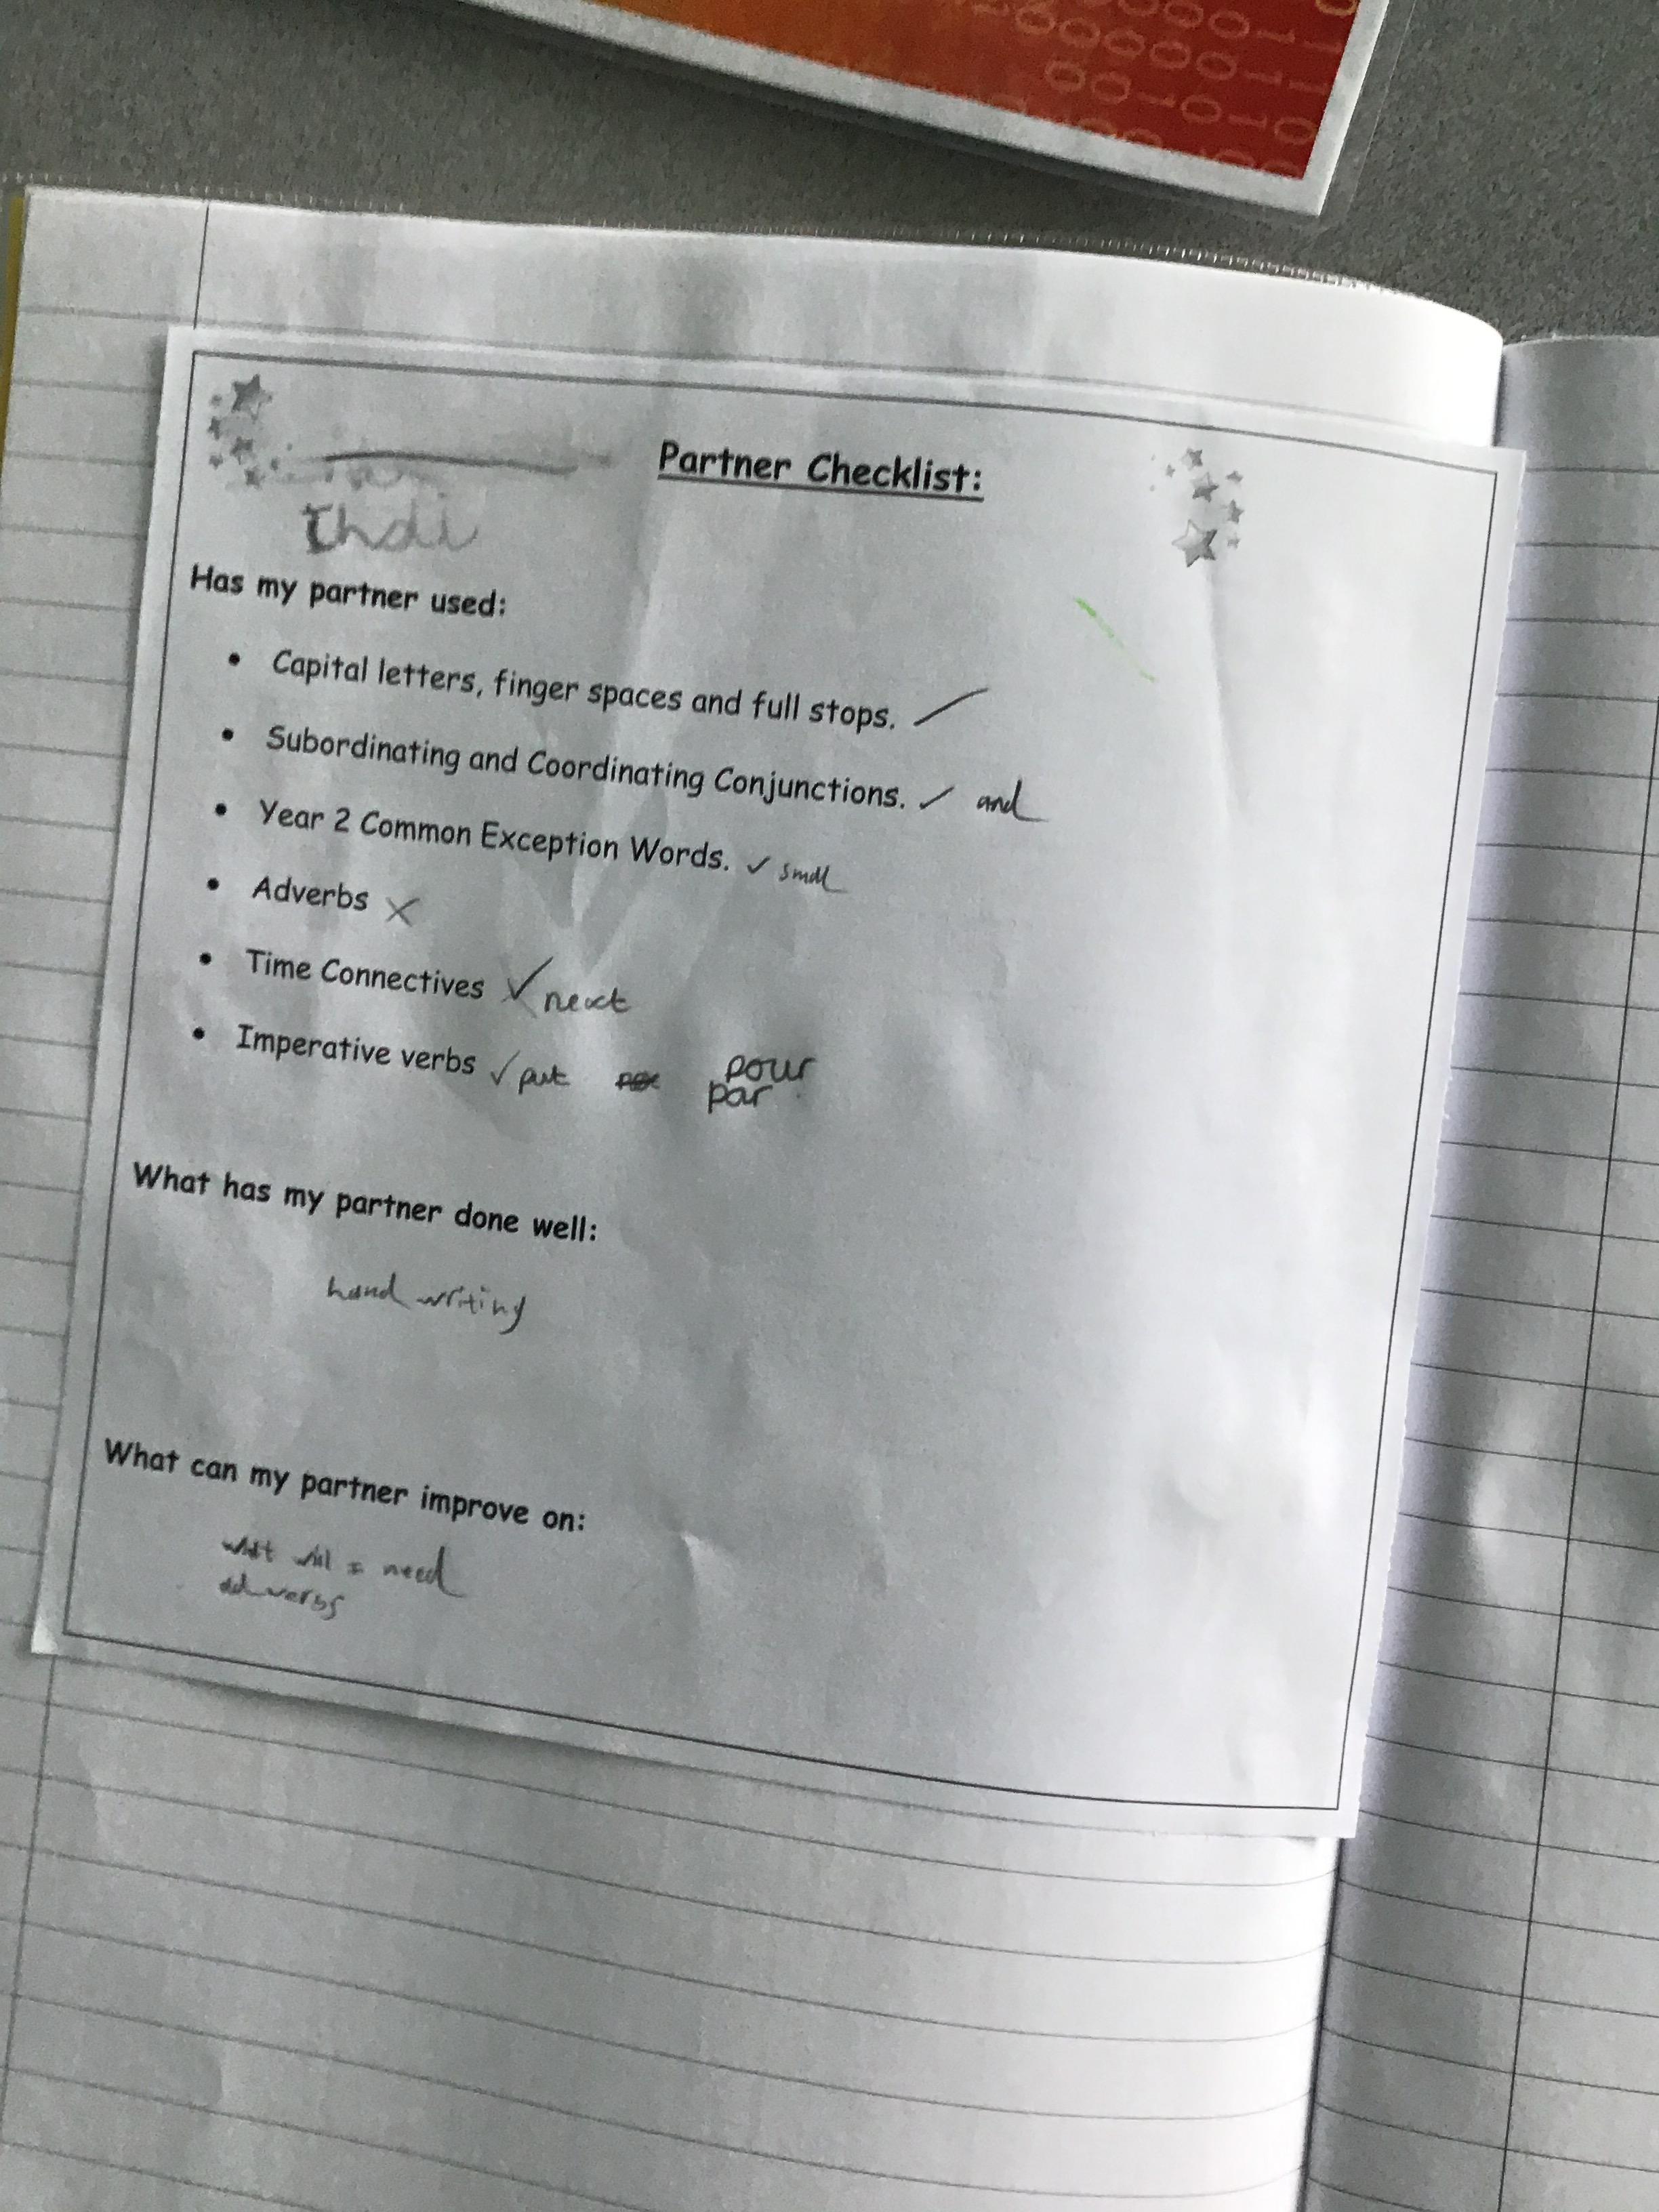 Partner Checklist:
Has my partner used:
• Capital letters, finger spaces and full stops. ✓
• Subordinating and Coordinating Conjunctions. ✓ and
• Year 2 Common Exception Words. ✓ small
• Adverbs ✗
• Time Connectives ✓ next
• Imperative verbs ✓ put pour
par
What has my partner done well:
hand writing
What can my partner improve on:
what will I need
adverbs